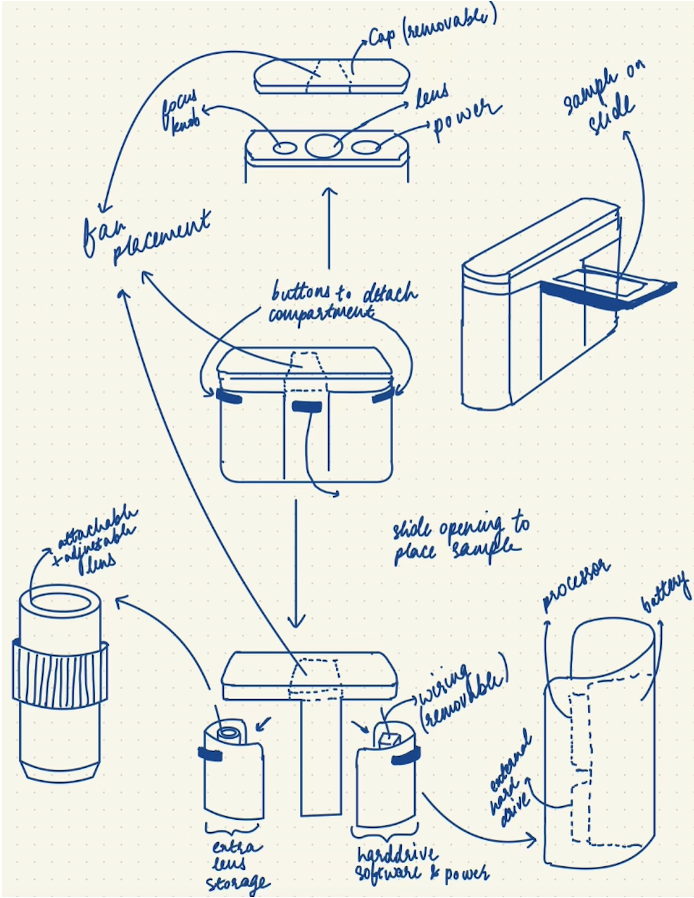 Cap (removable)
focus
knob
lens
power
sample on
slide
fan
placement
buttons to detach
compartment
slide opening to
place sample
attachable
+ adjustable
lens
processor
battery
wiring
(removable)
external
hard
drive
extra
lens
storage
harddrive
software & power